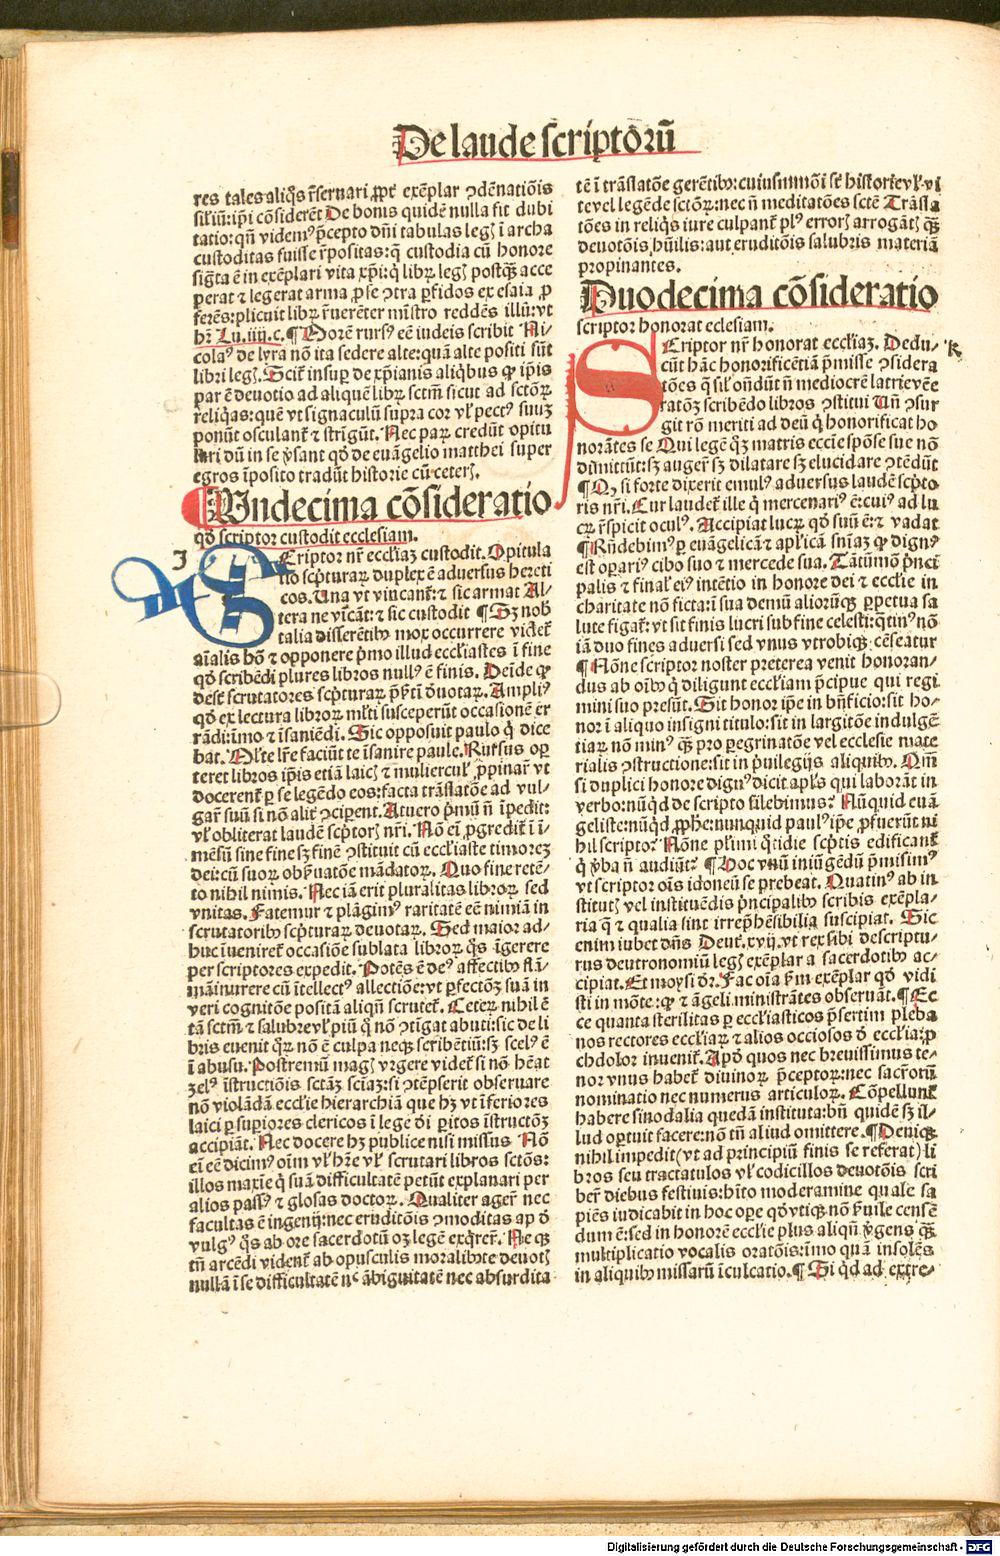 De laude scriptorū
res tales aliq̄s r̄seruari ꝓpt̄ exēplar ꝯdēnatiōis
De bonis quidē nulla fit dubi
tatio: qn̄ videmꝰ p̄cepto dn̄i tabulas legꝭ ī archa
custoditas fuisse r̄positas: q̄ custodia cū honore
sigta ē in exēplari vita xp̄i: q̇ libꝝ legꝭ postq̄ꝫ acce
perat ⁊ legerat arma ꝓ se ꝯtra ꝑfidos ex esaia ꝓ
ferēs: plicuit libꝝ r̄uerēter mīstro reddēs illū: vt
Lu. iiij. c. ¶ Morē rursꝰ eē iudeis scribit Ni
colaꝰ de lyra nō ita sedere alte: quā alte positi sūt
libri legꝭ. insuꝑ de xp̄ianis aliqbus ꝙ ip̄is
par ē deuotio ad aliquē libꝝ sctm̄ sicut ad sctoꝝ
reliq̄as: quē vt signaculū supra cor vl̓ pectꝰ suuꝫ
ponūt osculant̄ ⁊ strīgūt. Nec paꝝ credūt opitu
lari dū in se de euāgelio matthei super
egros īposito tradūt historie cū ceterꝭ.
Undecima cōsideratio
qd̓ scriptor custodit ecclesiam.
J
Scriptor nr̄ eccl̓iaꝫ custodit. Opitula
tio sc̓pturaꝝ duplex ē aduersus hereti
cos. Una vt vincant̄: ⁊ sic armat Al-
tera ne vīcāt: ⁊ sic custodit ¶ Sꝫ nob̄
talia disserētibꝰ mox occurrere videt̄
aīalis hō ⁊ opponere p̓mo illud eccl̓iastes ī fine
qd̓ scribēdi plures libros nullꝰ ē finis. Deīde ꝙ
desīt scrutatores sc̓pturaꝝ Ampliꝰ
qd̓ ex lectura libroꝝ ml̓ti susceperūt occasionē er
rādi: īmo ⁊ īsaniēdi. Sic opposuit paulo q̇ dice
bat. Ml̓te lr̄e faciūt te īsanire paule. Rursus opꝫ
teret libros ip̄is etiā laicꝭ ⁊ ꝓpinari vt
docerent̄ ꝑ se legēdo eos: facta trāslatōe ad vul-
gar̄ suū si nō alit̄ ꝯciꝑent. At vero p̓mū n̄ īpedit:
vl̓ obliterat laudē sc̓ptorꝭ nr̄i. Nō ei̇ ꝓgredit̄ ī ī-
mēsū sine fine sꝫ finē ꝯstituit cū eccl̓iaste timoreꝫ
dei: cū suoꝝ obẜuatōe mādatoꝝ. Quo fine retē-
to nihil nimis. Nec iā erit pluralitas libroꝝ sed
vnitas. Fatemur ⁊ plāgimꝰ raritatē eē nimiā in
scrutatoribꝰ sc̓pturaꝝ deuotaꝝ. Sed maior ad-
huc īueniret̄ occasiōe sublata libroꝝ q̄s īgerere
per scriptores expedit. Potēs ē deꝰ affectibꝰ
cū ītellectꝰ allectiōe: vt ꝑfectōꝫ suā in
veri cognitōe positā aliqn̄ scrutet̄. Ceteꝝ nihil ē
tā sctm̄ ⁊ salubre vl̓ piū q̇ nō ꝯtigat abuti: sic de li
bris euenit qꝝ nō ē culpa neqꝫ scribētiū: sꝫ scelꝰ ē
ī abusu. Postremū magꝭ vrgere videt̄ si nō hēat
zelꝰ īstructiōis sctāꝫ sciāꝫ: si ꝯtēpserit obseruare
nō violādā eccl̓ie hierarchiā que hꝫ vt īferiores
laici ꝑ suꝑiores clericos ī lege dei ꝑitos īstructōꝫ
accipiāt. Nec docere hꝫ publice nisi missus Nō
ei̇ eē dicimꝰ oīm vl̓ hr̄e vl̓ scrutari libros sctōs:
illos maxīe q̇ suā difficultatē petūt explanari per
alios passꝰ ⁊ glosas doctoꝝ. Qualiter ager̄ nec
facultas ē ingenij: nec eruditōis ꝯmoditas apd̓
vulgꝰ q̄s ab ore sacerdotū oꝫ legē exq̇rer̄. Ne qꝫ
tn̄ arcēdi vident̄ ab opusculis moralibꝰ deuotꝭ
nullā ī se difficultatē nc̄ ābiguitatē nec absurdita
tē ī trāslatōe gerētibꝰ: cuiusmōi sūt historie vl̓ vi
te vel legēde sctōꝝ: nec n̄ meditatōes sctē Trāsla
tōes in reliq̇s iure culpant̄ plꝰ errorꝭ arrogātꝭ q̄ꝫ
deuotōis hūilis: aut eruditōis salubris materiā
propinantes.
Duodecima cōsideratio
scriptor honorat ecclesiam.
K
Scriptor nr̄ honorat eccl̓iaꝫ. Dedu-
cūt hāc honorificētiā p̓misse ꝯsidera
tōes q̄ sil̓ on̄dūt n̄ mediocrē latrie eē
ratōꝫ scribēdo libros ꝯstitui Un̄ ꝯsur
git rō meriti ad deū q̇ honorificat ho
norātes se Qui legē qꝫ matris eccl̓ie spōse sue nō
dimittūt: sꝫ auger̄ sꝫ dilatare sꝫ elucidare ꝯtēdūt
¶ Qꝫ si forte dixerit emulꝰ aduersus laudē sc̓pto
ris nr̄i. Cur laudet̄ ille q̇ mercenariꝰ ē: cuiꝰ ad lu
cꝝ r̄spicit oculꝰ. Accipiat lucꝝ qd̓ suū ē: ⁊ vadat
¶ Rn̄debimꝰ ꝑ euāgelicā ⁊ apl̓icā sn̄iaꝫ ꝙ dignꝰ
est oꝑariꝰ cibo suo ⁊ mercede sua. Tātūmō p̓nci
palis ⁊ final̓ eiꝰ intētio in honore dei ⁊ eccl̓ie in
charitate nō ficta: ī sua demū aliorūqꝫ ꝑpetua sa
lute figat̄: vt sit finis lucri sub fine celesti: q̄tinꝰ nō
iā duo fines aduersi sed vnus vtrobiqꝫ cēseatur
¶ Nōne scriptor noster preterea venit honoran-
dus ab oībꝰ q̇ diligunt eccl̓iam p̄cipue qui regi
mini suo presūt. Sit honor ip̄e in bn̄ficio: sit ho-
nor ī aliquo insigni titulo: sit in largitōe indulgē
tiaꝝ nō minꝰ q̄ꝫ pro peregrinatōe vel ecclesie mate
rialis ꝯstructione: sit in p̓uilegijs aliquibꝰ. Qm̄
si duplici honore dignꝰ dicit apl̓s qui laborāt in
verbo: nūq̇d de scripto silebimus? Nūquid euā
geliste: nūq̇d ꝓphē: nunquid paulꝰ ip̄e ꝓfuerūt ni
hil scripto? Nōne pl̓imi q̄tidie sc̓ptis edificant̄
q̇ v̓ba n̄ audiūt? ¶ Hoc vnū iniūgēdū p̄misimꝰ
vt scriptor oīs idoneū se prebeat. Quatinꝰ ab in
stitutꝭ vel instituēdis p̓ncipalibꝰ scribis exēpla-
ria q̄ ⁊ qualia sint irrep̄hēsibilia suscipiat. Sic
enim iubet dn̄s Deut̄. xvij. vt rex sibi descriptu-
rus deutronomiū legꝭ exēplar a sacerdotibꝰ ac-
cipiat. Et moysi dr̄. Fac oīa ẜm exēplar qd̓ vidi
sti in mōte: ꝙ ⁊ āgeli ministrātes obseruāt. ¶ Ec
ce quanta sterilitas ꝑ eccl̓iasticos p̄sertim pleba
nos rectores eccl̓iaꝝ ⁊ alios occiosos ī eccl̓ia: ꝓ
ch dolor inuenit̄. Apd̓ quos nec breuissimus te-
nor vnus habet̄ diuinoꝝ p̄ceptoꝝ: nec sacr̄orū
nominatio nec numerus articuloꝝ. Cōpellunt̄
habere sinodalia quedā instituta: bn̄ quidē sꝫ il-
lud oꝑtuit facere: nō tn̄ aliud omittere. ¶ Deniqꝫ
nihil impedit (vt ad principiū finis se referat) li
bros seu tractatulos vl̓ codicillos deuotōis scri
ber̄ diebus festiuis: hīto moderamine quale sa
piēs iudicabit in hoc oꝑe qd̓ vtiqꝫ nō ẜuile censē
dum ē: sed in honorē eccl̓ie plus aliqn̄ v̓gens q̄ꝫ
multiplicatio vocalis oratōis: īmo quā insolēs
in aliquibꝰ missarū īculcatio. ¶ Si q̇d ad extre-
Digitalisierung gefördert durch die Deutsche Forschungsgemeinschaft - DFG